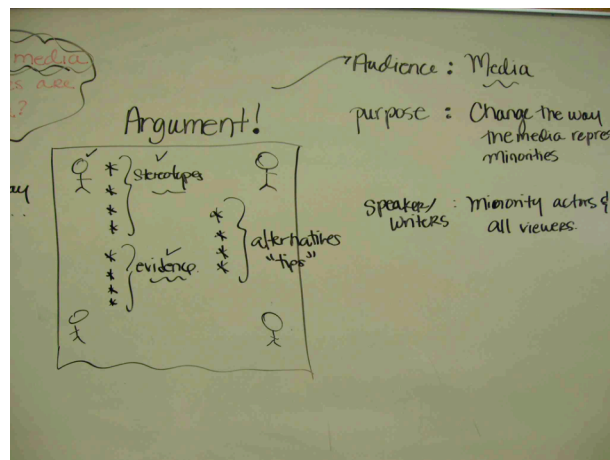 media
es are
?
Argument!
Stereotypes
evidence
alternatives
"tips"
Audience : Media
purpose : Change the way
the media repres
minorities
Speaker/
writers : minority actors &
all viewers.